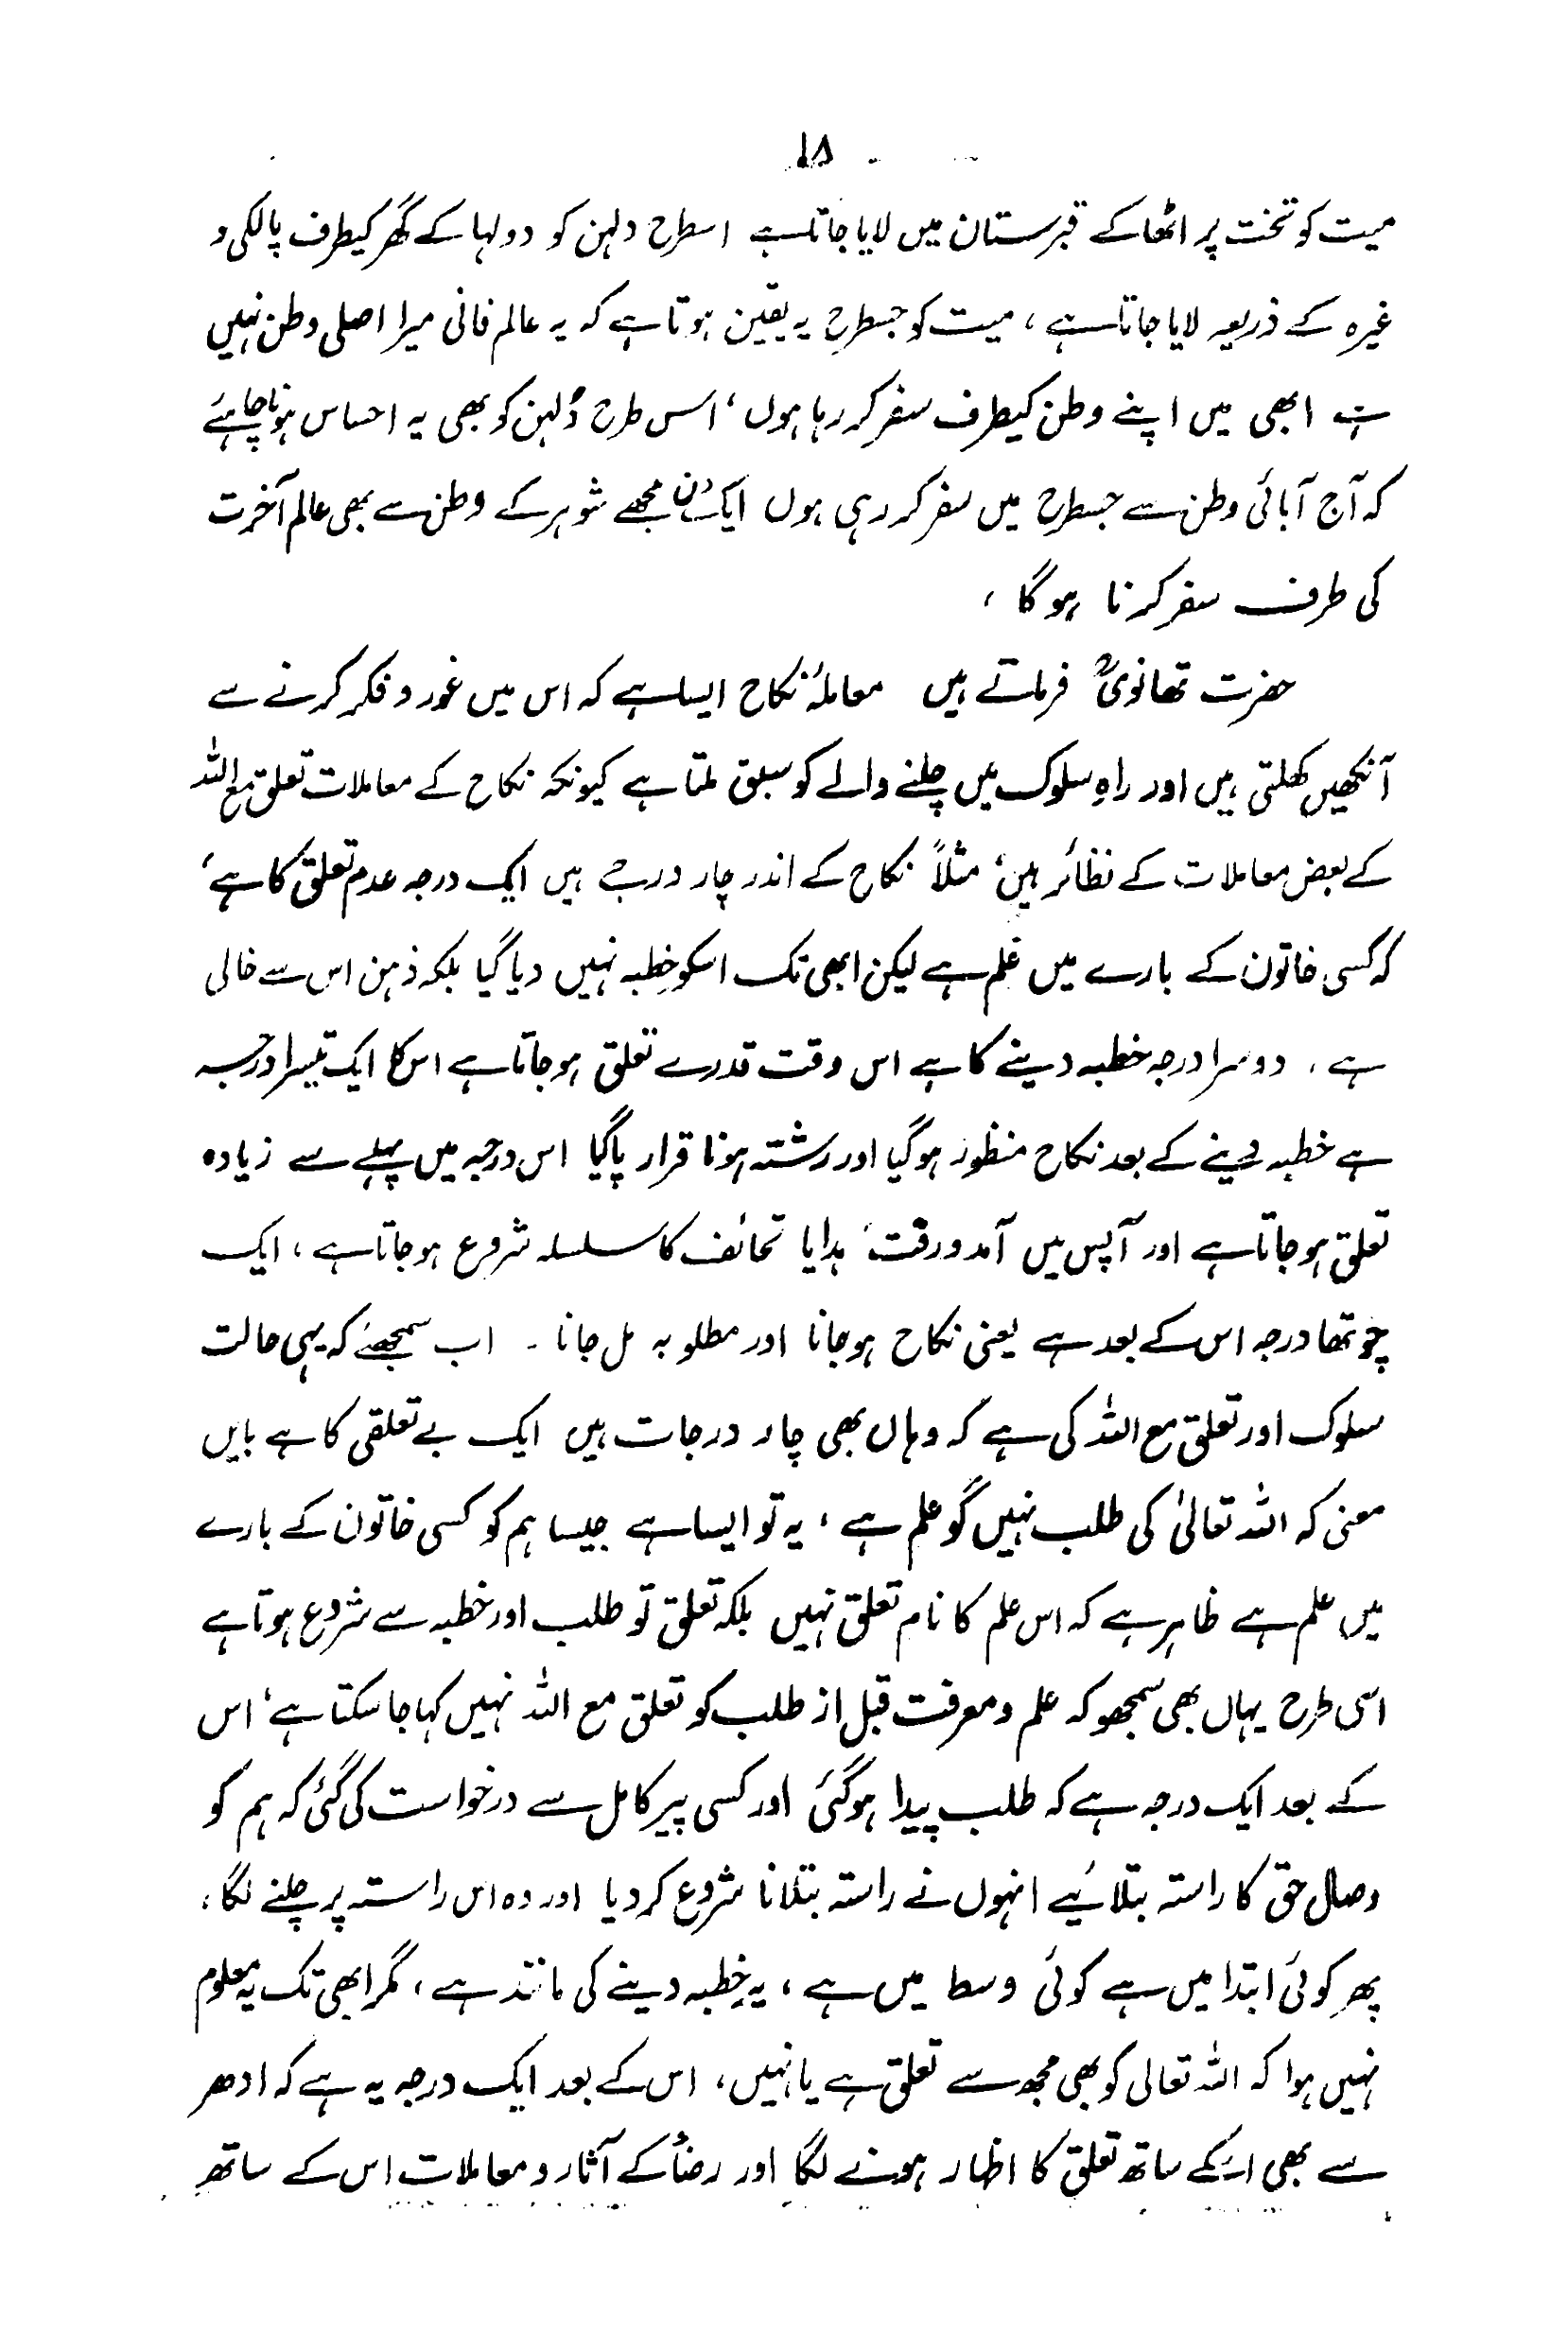 ۱۸
میت کو تخت پر اٹھا کے قبرستان میں لایا جاتا ہے اسطرح دلہن کو دولہا کے گھر کیطرف پالکی و
غیرہ کے ذریعہ لایا جاتا ہے ، میت کو جسطرح یہ یقین ہوتا ہے کہ یہ عالم فانی میرا اصلی وطن نہیں
ہے ابھی میں اپنے وطن کیطرف سفر کر رہا ہوں ، اس طرح دُلہن کو بھی یہ احساس ہونا چاہئے
کہ آج آبائی وطن سے جسطرح میں سفر کر رہی ہوں ایک دن مجھے شوہر کے وطن سے بھی عالم آخرت
کی طرف سفر کرنا ہوگا ،
حضرت تھانویؒ فرماتے ہیں معاملۂ نکاح ایسا ہے کہ اس میں غور و فکر کرنے سے
آنکھیں کھلتی ہیں اور راہِ سلوک میں چلنے والے کو سبق ملتا ہے کیونکہ نکاح کے معاملات تعلق مع اللہ
کے بعض معاملات کے نظائر ہیں ، مثلاً نکاح کے اندر چار درجے ہیں ایک درجہ عدم تعلق کا ہے ،
کہ کسی خاتون کے بارے میں علم ہے لیکن ابھی تک اسکو خِطبہ نہیں دیا گیا بلکہ ذہن اس سے خالی
ہے ، دوسرا درجہ خطبہ دینے کا ہے اس وقت قدرے تعلق ہو جاتا ہے اس کا ایک تیسرا درجہ
ہے خطبہ دینے کے بعد نکاح منظور ہوگیا اور رشتہ ہونا قرار پاگیا اس درجہ میں پہلے سے زیادہ
تعلق ہو جاتا ہے اور آپس میں آمد ورفت ، ہدایا تحائف کا سلسلہ شروع ہو جاتا ہے ، ایک
چوتھا درجہ اس کے بعد ہے یعنی نکاح ہو جانا اور مطلوبہ مل جانا ۔ اب سمجھئے کہ یہی حالت
سلوک اور تعلق مع اللہ کی ہے کہ وہاں بھی چار درجات ہیں ایک بے تعلقی کا ہے بایں
معنی کہ اللہ تعالیٰ کی طلب نہیں گو علم ہے ، یہ تو ایسا ہے جیسا ہم کو کسی خاتون کے بارے
میں علم ہے ظاہر ہے کہ اس علم کا نام تعلق نہیں بلکہ تعلق تو طلب اور خطبہ سے شروع ہوتا ہے
اسی طرح یہاں بھی سمجھو کہ علم و معرفت قبل از طلب کو تعلق مع اللہ نہیں کہا جا سکتا ہے ، اس
کے بعد ایک درجہ ہے کہ طلب پیدا ہوگئی اور کسی پیر کامل سے درخواست کی گئی کہ ہم کو
وصال حق کا راستہ بتلائیے انہوں نے راستہ بتلانا شروع کر دیا اور وہ اس راستہ پر چلنے لگا ،
پھر کوئی ابتدا میں ہے کوئی وسط میں ہے ، یہ خِطبہ دینے کی مانند ہے ، مگر ابھی تک یہ معلوم
نہیں ہوا کہ اللہ تعالی کو بھی مجھ سے تعلق ہے یا نہیں ، اس کے بعد ایک درجہ یہ ہے کہ ادھر
سے بھی اسکے ساتھ تعلق کا اظہار ہونے لگا اور رضأ کے آثار و معاملات اس کے ساتھ